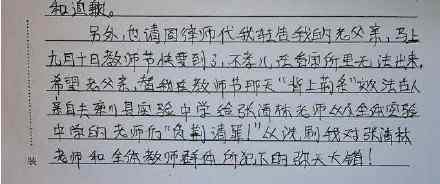 和道歉。
另外，也请周律师代我转告我的老父亲，马上
九月十日教师节快要到了，不孝儿，在看守所里无法出来，
希望老父亲，替我在教师节那天"背上荆条"效法古人
亲自去栾川县实验中学给张清林老师以及全体实验
中学的老师们"负荆请罪！"以洗刷我对张清林
老师和全体教师群体所犯下的弥天大错！
装